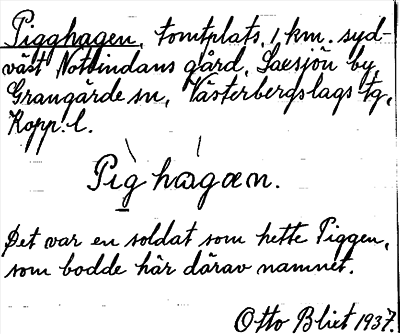 Pigghagen, tomtplats, 1 km. syd-
väst Notbindans gård, Saxsjön by,
Grangärde sn, Västerbergslags tg,
Kopp. l.
Pìg hagæn.
Det var en soldat som hette Piggen,
som bodde här därav namnet.
Otto Blixt 1937.